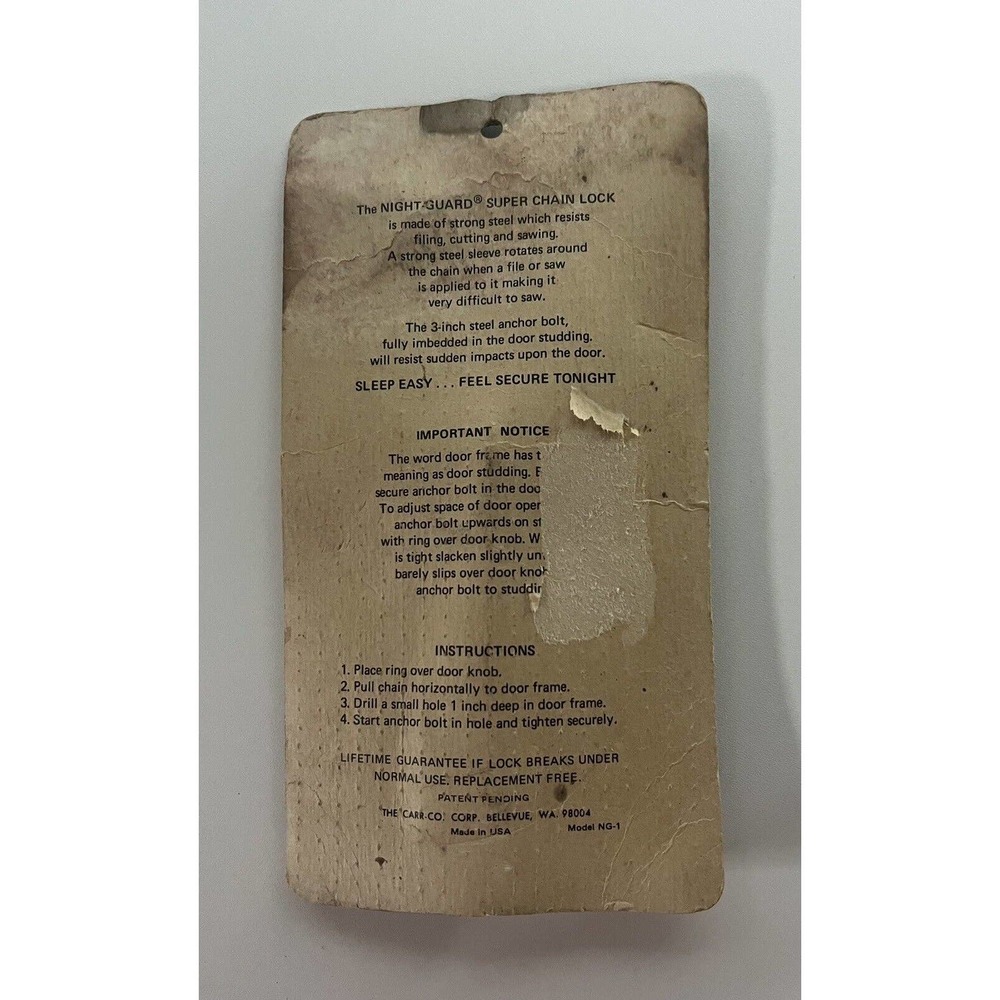 The NIGHT-GUARD® SUPER CHAIN LOCK
is made of strong steel which resists
filing, cutting and sawing.
A strong steel sleeve rotates around
the chain when a file or saw
is applied to it making it
very difficult to saw.
The 3-inch steel anchor bolt,
fully imbedded in the door studding.
will resist sudden impacts upon the door.
SLEEP EASY . . . FEEL SECURE TONIGHT
IMPORTANT NOTICE
The word door frame has
meaning as door studding.
secure anchor bolt in the
To adjust space of door
anchor bolt upwards on
with ring over door knob.
is tight slacken slightly
barely slips over door
anchor bolt to
INSTRUCTIONS
1. Place ring over door knob.
2. Pull chain horizontally to door frame.
3. Drill a small hole 1 inch deep in door frame.
4. Start anchor bolt in hole and tighten securely.
LIFETIME GUARANTEE IF LOCK BREAKS UNDER
NORMAL USE. REPLACEMENT FREE.
PATENT PENDING
THE CARR-CO. CORP. BELLEVUE, WA. 98004
Made in USA Model NG-1